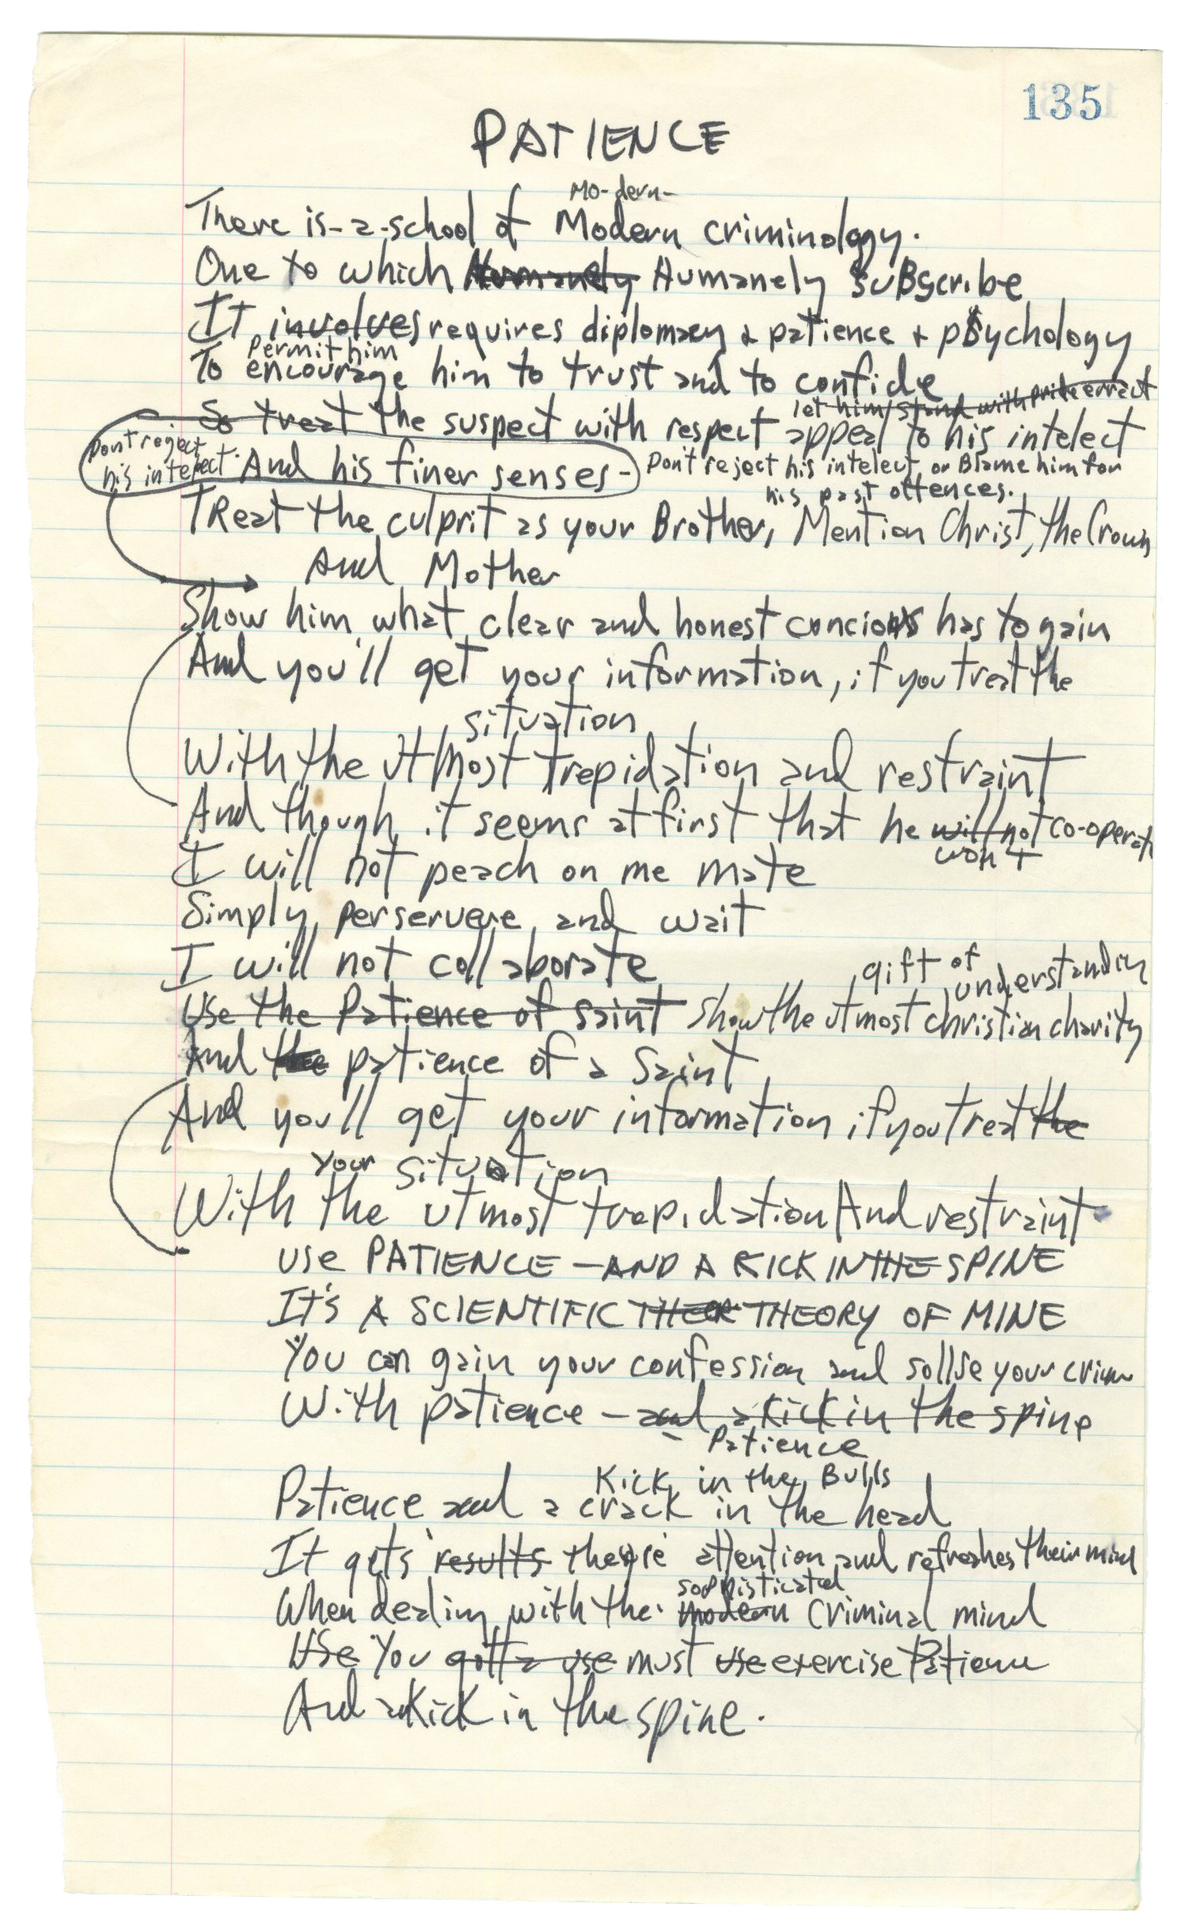 135
PATIENCE
Mo-dern-
There is-a-school of Modern criminology.
One to which Humanely Humanely subscribe
It involves requires diplomacy & patience + psychology
Permit him
To encourage him to trust and to confide
let him stand with pride erect
So treat the suspect with respect appeal to his intelect
Dont reject
his intelect. And his finer senses - Don't reject his intelect, or Blame him for
his past offences.
Treat the culprit as your Brother, Mention Christ, the Crown
And Mother
Show him what clear and honest has to gain
And you'll get your information, if you treat the
situation
With the utmost trepidation and restraint
And though it seems at first that he will not co-operate
won't
I will not peach on me mate
Simply perservere and wait
I will not collaborate
gift of understandin
Use the Patience of saint show the utmost christian charity
And the patience of a Saint
And you'll get your information if you treat the
Your situation
With the utmost trepidation And restraint
USE PATIENCE - AND A KICK IN THE SPINE
IT'S A SCIENTIFIC THEOR THEORY OF MINE
You can gain your confession and sollve your crime
With patience - and a kick in the spine
- Patience
Kick in the Balls
Patience and a crack in the head
It gets results attention and refreshes their mind
sophisticated
When dealing with the modern criminal mind
Use You gotta use must use exercise Patience
And a Kick in the spine.